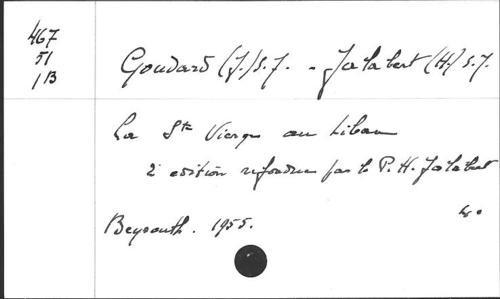 467
51
1B
Goudard (J.) s.J. - Jalabert (H.) s.J.
La Ste Vierge au Liban
2e edition refondue par le P. H. Jalabert
Beyrouth. 1955.